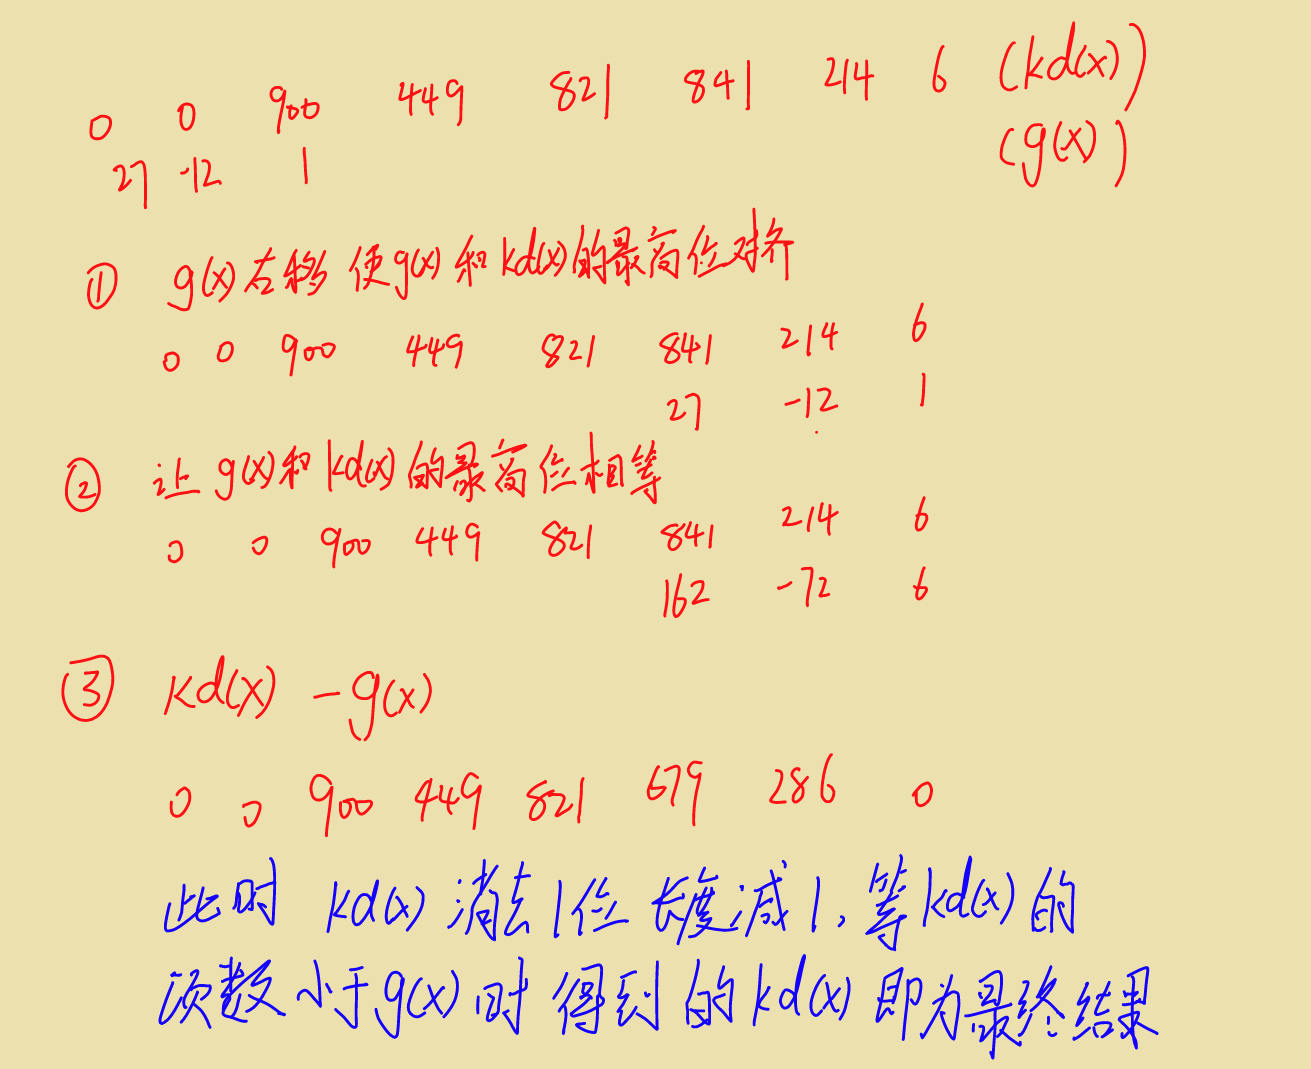 0 0 900 449 821 841 214 6 (kd(x))
27 -12 1 (g(x))
① g(x)右移 使g(x)和kd(x)的最高位对齐
0 0 900 449 821 841 214 6
27 -12 1
② 让g(x)和kd(x)的最高位相等
0 0 900 449 821 841 214 6
162 -72 6
③ kd(x) -g(x)
0 0 900 449 821 679 286 0
此时 kd(x) 消去1位 长度减1,等kd(x)的
次数小于g(x)时得到的kd(x)即为最终结果